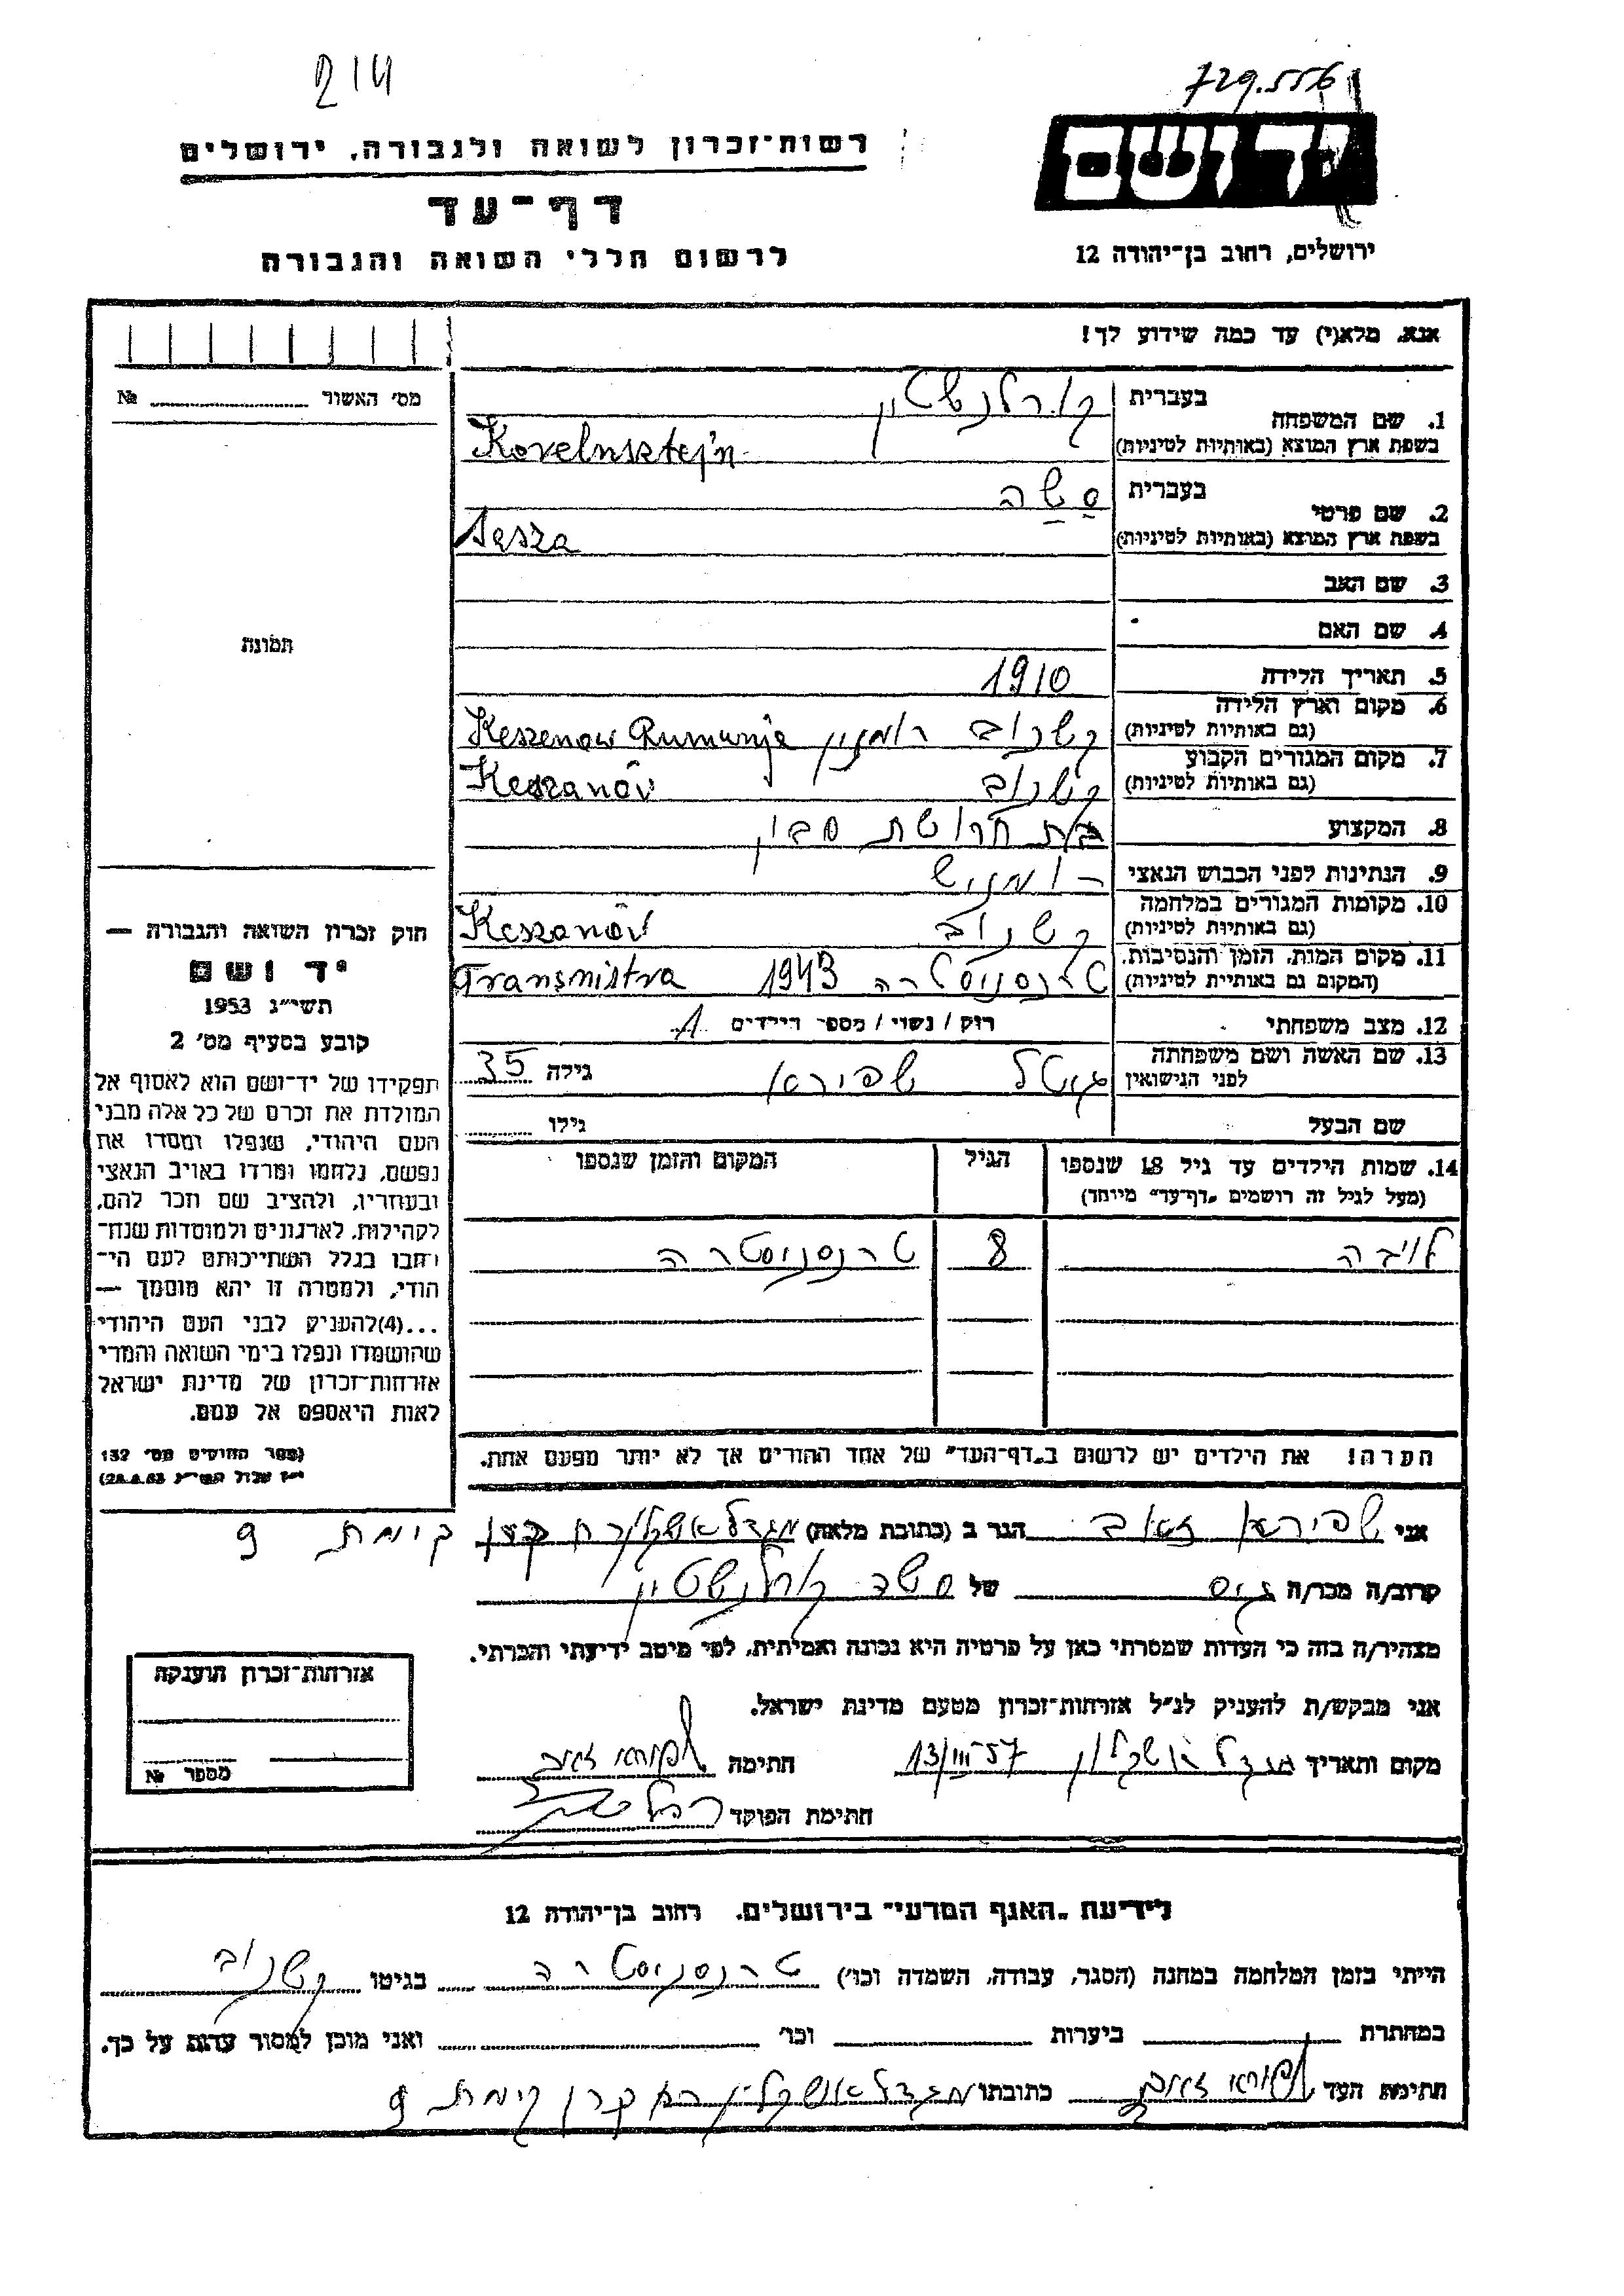 214
729.556
יד ושם
רשות־זכרון לשואה ולגבורה, ירושלים
דף־עד
לרשום חללי השואה והגבורה
ירושלים, רחוב בן־יהודה 12
אנא, מלא(י) עד כמה שידוע לך!
מס׳ האשור № 
1. שם המשפחה
בעברית קורלנשטיין
בשפת ארץ המוצא (באותיות לטיניות) Korelnsztejn
2. שם פרטי
בעברית סשה
בשפת ארץ המוצא (באותיות לטיניות) Sasza
3. שם האב
4. שם האם
תמונה
5. תאריך הלידה 1910
6. מקום וארץ הלידה
(גם באותיות לטיניות) קשנוב רומניון Keszenow Rumunja
7. מקום המגורים הקבוע
(גם באותיות לטיניות) קשנוב Keszanów
8. המקצוע בית חרושת סבון
9. הנתינות לפני הכבוש הנאצי רומניש
10. מקומות המגורים במלחמה
(גם באותיות לטיניות) קשנוב Keszanów
11. מקום המות, הזמן והנסיבות.
(המקום גם באותיות לטיניות) טרנסניסטרה 1943 Transnistra
12. מצב משפחתי רוק / נשוי / מספר הילדים 1
13. שם האשה ושם משפחתה
לפני הנישואין גיטל שפירא גילה 35
שם הבעל גילו
14. שמות הילדים עד גיל 18 שנספו הגיל המקום והזמן שנספו
(מעל לגיל זה רושמים „דף־עד” מיוחד)
לויבה 8 טרנסניסטרה
הערה! את הילדים יש לרשום ב„דף־העד” של אחד ההורים אך לא יותר מפעם אחת.
חוק זכרון השואה והגבורה —
יד ושם
תשי״ג 1953
קובע בסעיף מס׳ 2
תפקידו של יד־ושם הוא לאסוף אל
המולדת את זכרם של כל אלה מבני
העם היהודי, שנפלו ומסרו את
נפשם, נלחמו ומרדו באויב הנאצי
ובעוזריו, ולהציב שם וזכר להם,
לקהילות, לארגונים ולמוסדות שנח־
רבו בגלל השתייכותם לעם הי־
הודי, ולמטרה זו יהא מוסמך —
...(4)להעניק לבני העם היהודי
שהושמדו ונפלו בימי השואה והמרי
אזרחות־זכרון של מדינת ישראל
לאות היאספם אל עמם.
(ספר החוקים מס׳ 132
אני שפירא זאב הגר ב (כתובת מלאה) מגדל אשקלון רח קרן קימת 9
קרוב/ה מכר/ה גיס של סשה קורלנשטיין
מצהיר/ה בזה כי העדות שמסרתי כאן על פרטיה היא נכונה ואמיתית, לפי מיטב ידיעתי והכרתי.
אני מבקש/ת להעניק לנ״ל אזרחות־זכרון מטעם מדינת ישראל.
מקום ותאריך מגדל אשקלון 13/III 57 חתימה שפירא זאב
חתימת הפוקד
אזרחות־זכרון הוענקה
מספר №
לידיעת „האגף המדעי” בירושלים, רחוב בן־יהודה 12
הייתי בזמן המלחמה במחנה (הסגר, עבודה, השמדה וכו׳) טרנסניסטרה בגיטו קשנוב
במחתרת ביערות וכו׳ ואני מוכן למסור עדות על כך.
חתימת העד שפירא זאב כתובתו מגדל אשקלון רח קרן קימת 9